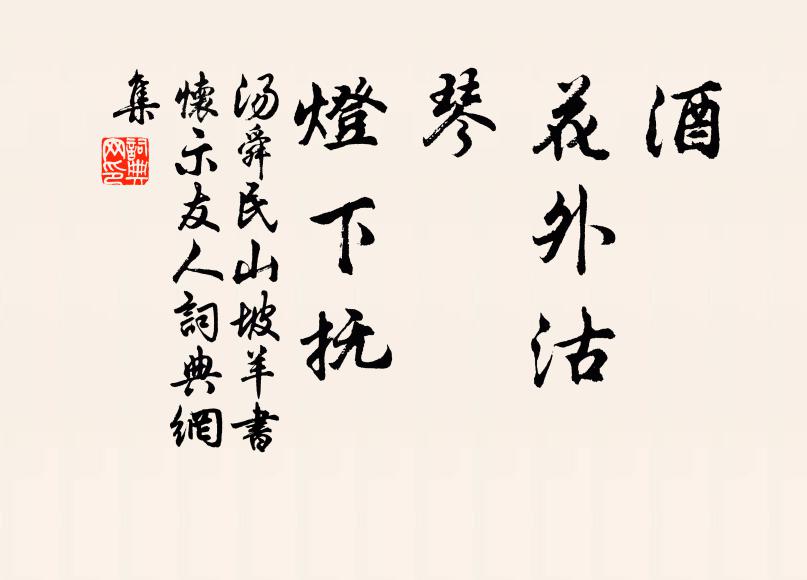 酒
花外沽
琴
燈下抚
汤舜民山坡羊書
懷示友人詞典網
集
詞典
网印